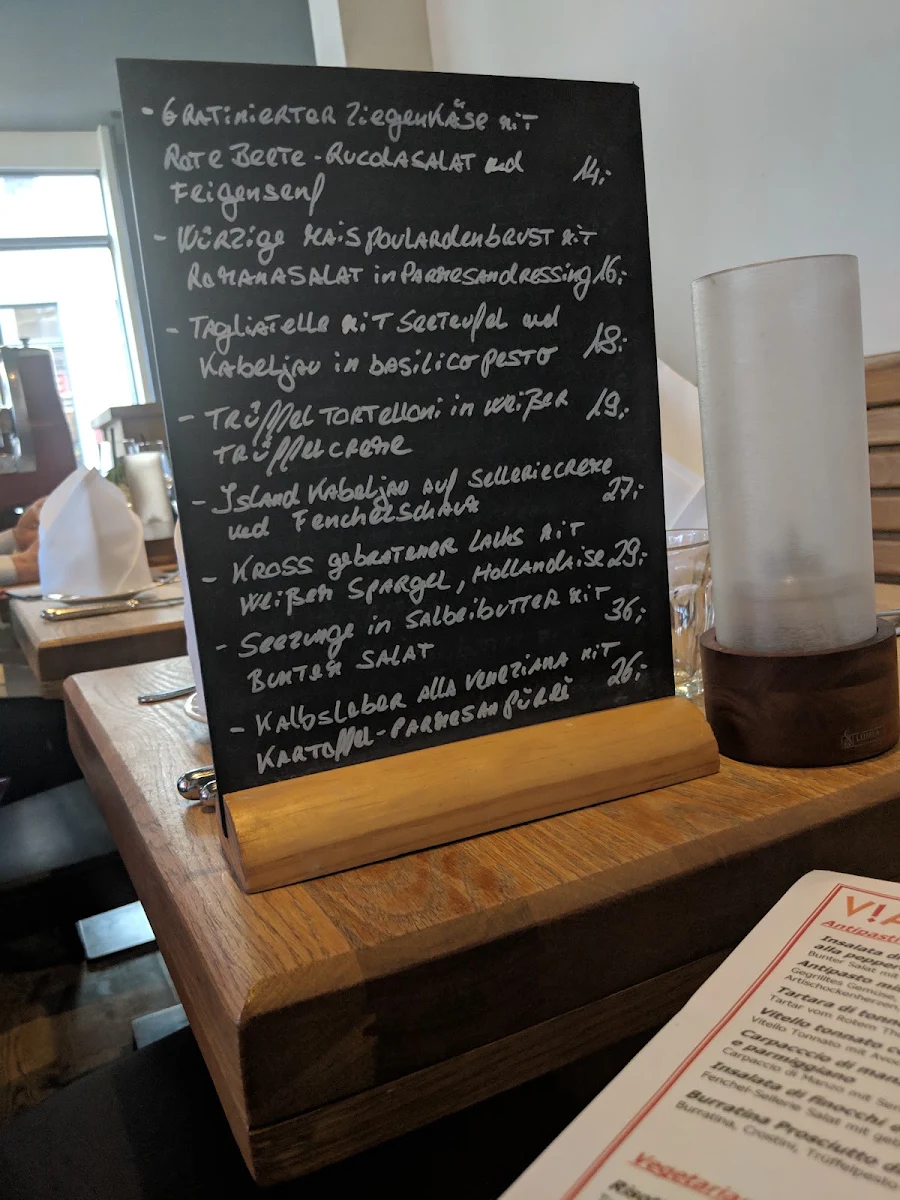 - Gratinierter Ziegenkäse mit
Rote Beete-Rucolasalat und 14,-
Feigensenf
- Würzige Maispoulardenbrust mit
Romanasalat in Parmesandressing 16,-
- Tagliatelle mit Seeteufel und
Kabeljau in basilico pesto 18,-
- Trüffel Tortelloni in weißer 19,-
Trüffelcreme
- Island Kabeljau auf Selleriecreme
und Fenchelschaum 27,-
- Kross gebratener Lachs mit
weißen Spargel, Hollandaise 29,-
- Seezunge in Salbeibutter mit 36,-
bunten Salat
- Kalbsleber alla Veneziana mit
Kartoffel-Parmesanpüree 26,-
V!A
Antipasti
Insalata di
alla pepper
Bunter Salat mit
Antipasto mi
Gegrilltes Gemüse,
Artischockenherzen
Tartara di tonn
Tartar vom Rotem Th
Vitello tonnato c
Vitello Tonnato mit Avoc
Carpacccio di man
e parmiggiano
Carpaccio di Manzo mit Sen
Insalata di finocchi e
Fenchel-Sellerie Salat mit geb
Burratina Prosciutto d
Burratina, Crostini, Trüffelpesto
Vegetaria